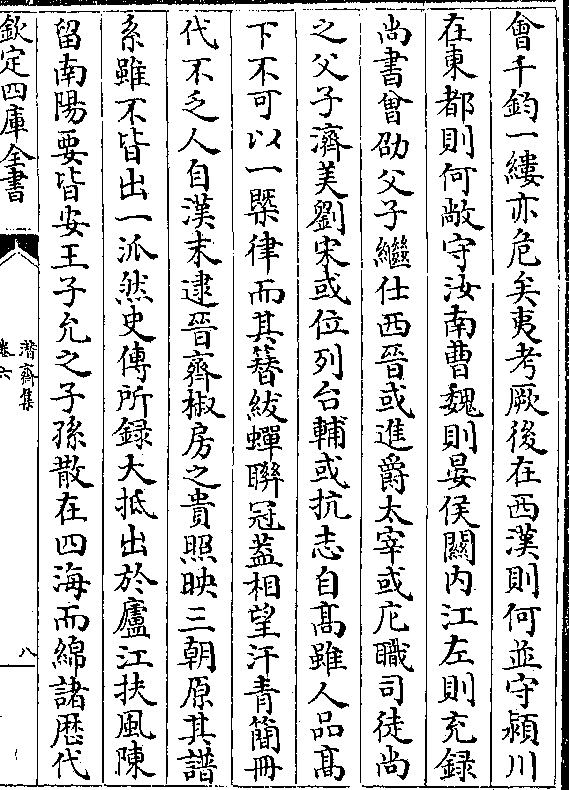 會千鈞一縷亦危矣夷考厥後在西漢則何並守潁川
在東都則何敞守汝南曹魏則晏侯關内江左則充録
尚書曾劭父子繼仕西晉或進爵太宰或庀職司徒尚
之父子濟美劉宋或位列台輔或抗志自髙雖人品髙
下不可以一槩律而其簪紱蟬聯冠葢相望汗青簡冊
代不乏人自漢末逮晉齊椒房之貴照映三朝原其譜
系雖不皆出一派然史傳所録大抵出於廬江扶風陳
留南陽要皆安王子允之子孫散在四海而綿諸歴代
欽定四庫全書
潛齋集
卷六
八